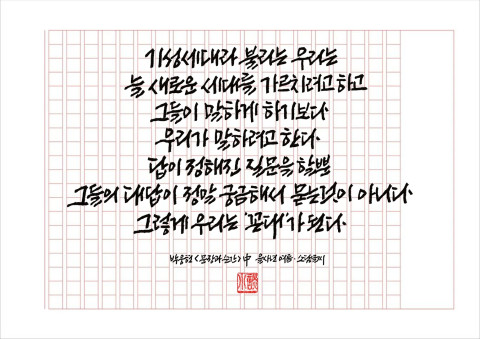 기성세대라 불리는 우리는
늘 새로운 세대를 가르치려고 하고
그들이 말하게 하기보다
우리가 말하려고 한다.
답이 정해진 질문을 할뿐
그들의 대답이 정말 궁금해서 묻는것이 아니다.
그렇게 우리는 '꼰대'가 된다.
박웅현 <문장과 순간> 中